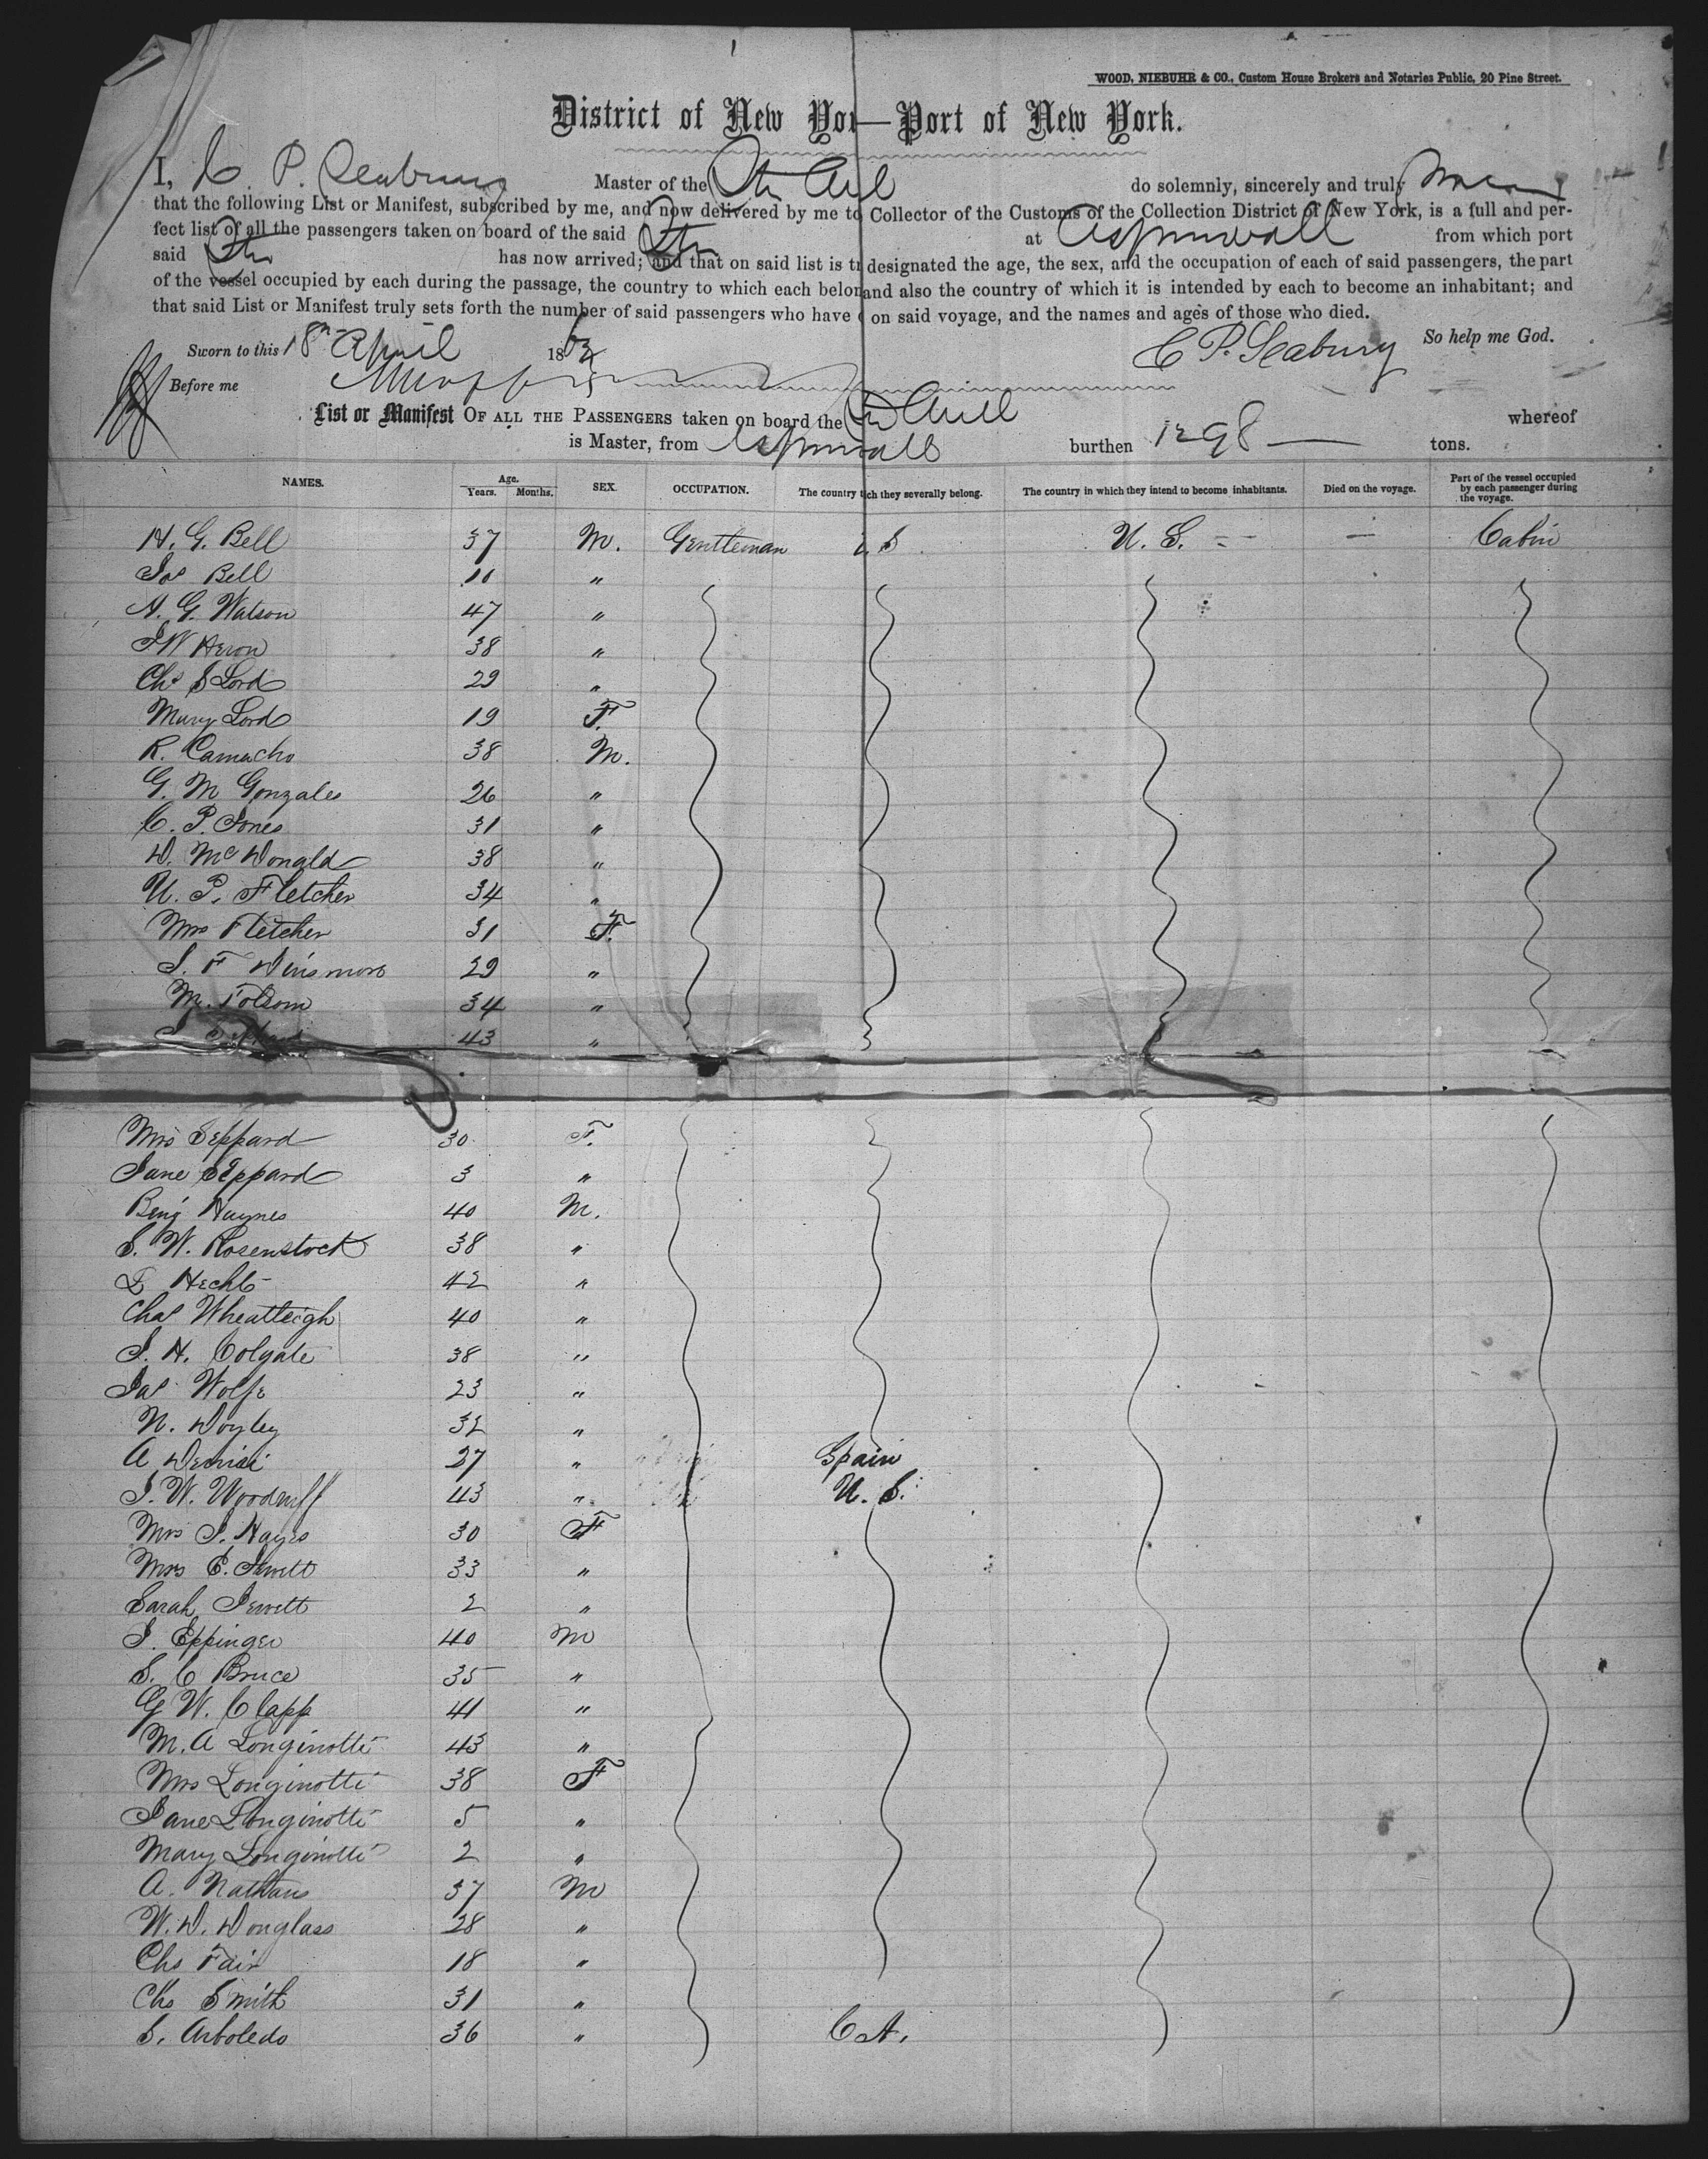 WOOD, NIEBUHR & CO., Custom House Brokers and Notaries Public, 20 Pine Street.
District of New Yor—Port of New York.
I, C. P. Seabury Master of the Str Ariel do solemnly, sincerely and truly
that the following List or Manifest, subscribed by me, and now delivered by me to Collector of the Customs of the Collection District of New York, is a full and per-
fect list of all the passengers taken on board of the said Str at Aspinwall from which port
said Str has now arrived; and that on said list is tr designated the age, the sex, and the occupation of each of said passengers, the part
of the vessel occupied by each during the passage, the country to which each belon and also the country of which it is intended by each to become an inhabitant; and
that said List or Manifest truly sets forth the number of said passengers who have on said voyage, and the names and ages of those who died.
Sworn to this 18th April 1863 C P. Seabury So help me God.
Before me
List or Manifest OF ALL THE PASSENGERS taken on board the Str Ariel whereof
is Master, from Aspinwall burthen 1298 — tons.
NAMES. Age. Years. Months. SEX. OCCUPATION. The country ich they severally belong. The country in which they intend to become inhabitants. Died on the voyage. Part of the vessel occupied by each passenger during the voyage.
H. G. Bell 37 M. Gentleman U. S. U. S. — Cabin
Jas Bell 10 "
A. G. Watson 47 "
J W Heron 38 "
Chs S Lord 29 "
Mary Lord 19 F.
R. Camacho 38 M.
G. M Gonzales 26 "
C. P. Jones 31 "
D. McDonald 38 "
U. P. Fletcher 34 "
Mrs Fletcher 31 F.
S. F Dinsmore 29 "
M. Folsom 34 "
43 "
Mrs Seppard 30 F.
Jane Seppard 3 "
Benj Haynes 40 M.
S. W. Rosenstock 38 "
L Hecht 42 "
Chas Wheatleigh 40 "
J. H. Colgate 38 "
Jas Wolfe 23 "
N. Doyley 32 "
A 27 " Spain
J. W. Woodruff 43 " U. S.
Mrs J. Hayes 30 F
Mrs E. Jewett 33 "
Sarah Jewett 2 "
J. Eppinger 40 M
S. C Bruce 35 "
G W. Clapp 41 "
M. A Longinotti 43 "
Mrs Longinotti 38 F
Jane Longinotti 5 "
Mary Longinotti 2 "
A. Nathans 37 M
W. D. Douglass 28 "
Chs Fair 18 "
Chs Smith 31 "
S. Arboledo 36 " C A.